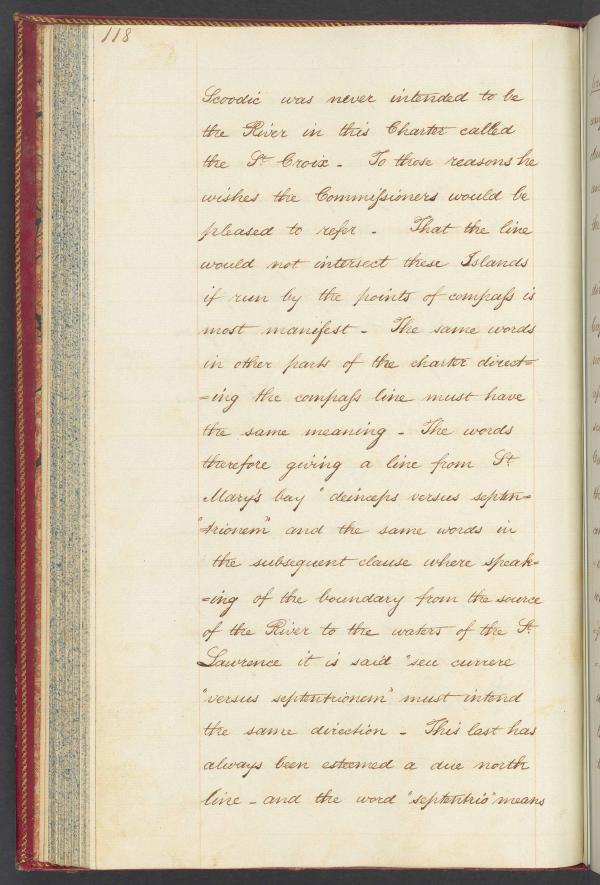 118
Scoodic was never intended to be
the River in this Charter called
the St. Croix - To those reasons he
wishes the Commissioners would be
pleased to refer - That the line
would not intersect these Islands
if run by the points of compass is
most manifest - The same words
in other parts of the charter direct=
=ing the compass line must have
the same meaning - The words
therefore giving a line from St.
Mary's bay "deinceps versus septen=
"trionem" and the same words in
the subsequent clause where speak=
=ing of the boundary from the source
of the River to the waters of the St.
Lawrence it is said "seu currere
"versus septentrionem" must intend
the same direction - This last has
always been esteemed a due north
line - and the word "septentrio" means